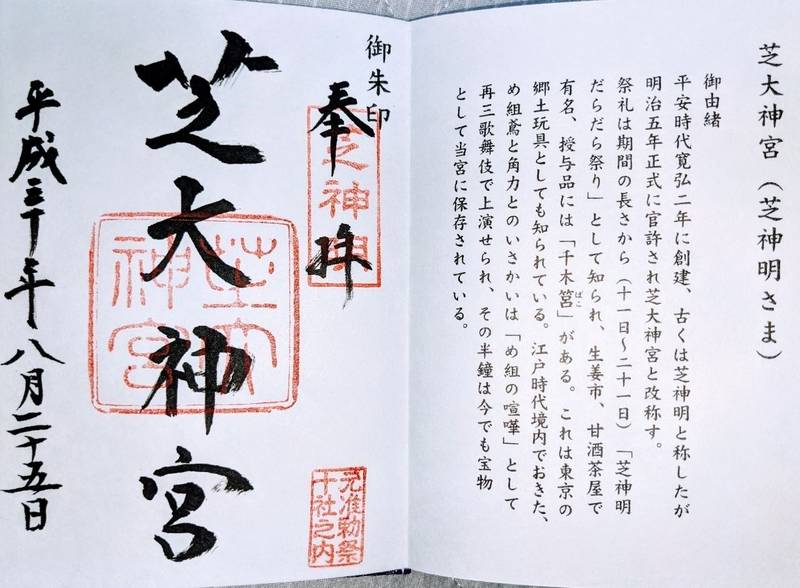 芝大神宮（芝神明さま）
御由緒
平安時代寛弘二年に創建、古くは芝神明と称したが
明治五年正式に官許され芝大神宮と改称す。
祭礼は期間の長さから（十一日～二十一日）「芝神明
だらだら祭り」として知られ、生姜市、甘酒茶屋で
有名、授与品には「千木筥」がある。これは東京の
ばこ
郷土玩具としても知られている。江戸時代境内でおきた、
め組鳶と角力とのいさかいは「め組の喧嘩」として
再三歌舞伎で上演せられ、その半鐘は今でも宝物
として当宮に保存されている。
御朱印
奉拝
芝神明
芝大神宮
芝大神宮
元准勅祭
十社之内
平成三十年八月二十五日